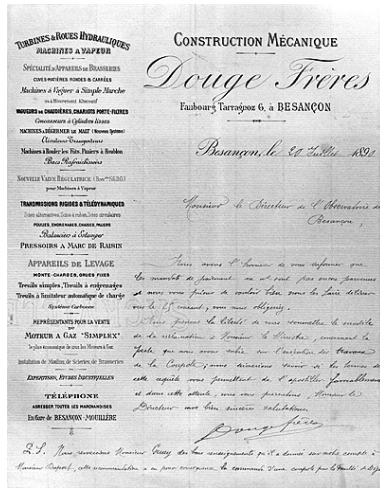 TURBINES & ROUES HYDRAULIQUES
MACHINES A VAPEUR
SPÉCIALITÉ D'APPAREILS DE BRASSERIES
CUVES-MATIÈRES RONDES & CARRÉES
Machines à Vaguer à Simple Marche
ou à Mouvement Alternatif
VAGUEURS DE CHAUDIÈRES, CHARIOTS PORTE-FÛTS
Concasseurs à Cylindres lisses
MACHINES A DÉGERMER LE MALT (Nouveau Système)
Machines à Rouler les Fûts, Paniers à Houblon
Bacs Rafraîchissoirs
NOUVELLE VALVE RÉGULATRICE
pour Machines à Vapeur
TRANSMISSIONS RIGIDES & TÉLÉDYNAMIQUES
POULIES, ENGRENAGES, CHAISES, PALIERS
PRESSOIRS A MARC DE RAISIN
APPAREILS DE LEVAGE
MONTE-CHARGES, GRUES FIXES
Treuils simples, Treuils à engrenages
Treuils à limitateur automatique de charge
REPRÉSENTANTS POUR LA VENTE
DU
MOTEUR A GAZ "SIMPLEX"
Installation de Moulins, de Scieries, de Brasseries
EXPERTISES, ETUDES INDUSTRIELLES
TÉLÉPHONE
ADRESSER TOUTES LES MARCHANDISES
En Gare de BESANÇON-MOUILLÈRE
CONSTRUCTION MÉCANIQUE
Douge Frères
Faubourg Tarragnoz 6, à BESANÇON
Besançon, le 20 Juillet 1890
Monsieur le Directeur de l'Observatoire de
Besançon,
Nous avons l'honneur de vous informer que
les mandats de paiement ne sont pas encore parvenus
et nous vous prions de vouloir bien nous les faire délivrer
vers le 25 courant, vous nous obligerez.
Nous prenons la liberté de vous
de la réclamation à Monsieur le Ministre, concernant la
perte que nous avons subie sur l'exécution des travaux
de la Coupole; nous aimerions savoir si les termes de
cette requête vous permettent de l'apostiller favorablement
et dans cette attente, nous vous présentons, Monsieur le
Directeur nos bien sincères salutations.
Douge frères
P.S. Nous remercions Monsieur Gruey des bons renseignements qu'il a donnés sur notre compte à
Monsieur, cette recommandation a eu pour conséquence la commande d'une coupole pour la Faculté de Dijon